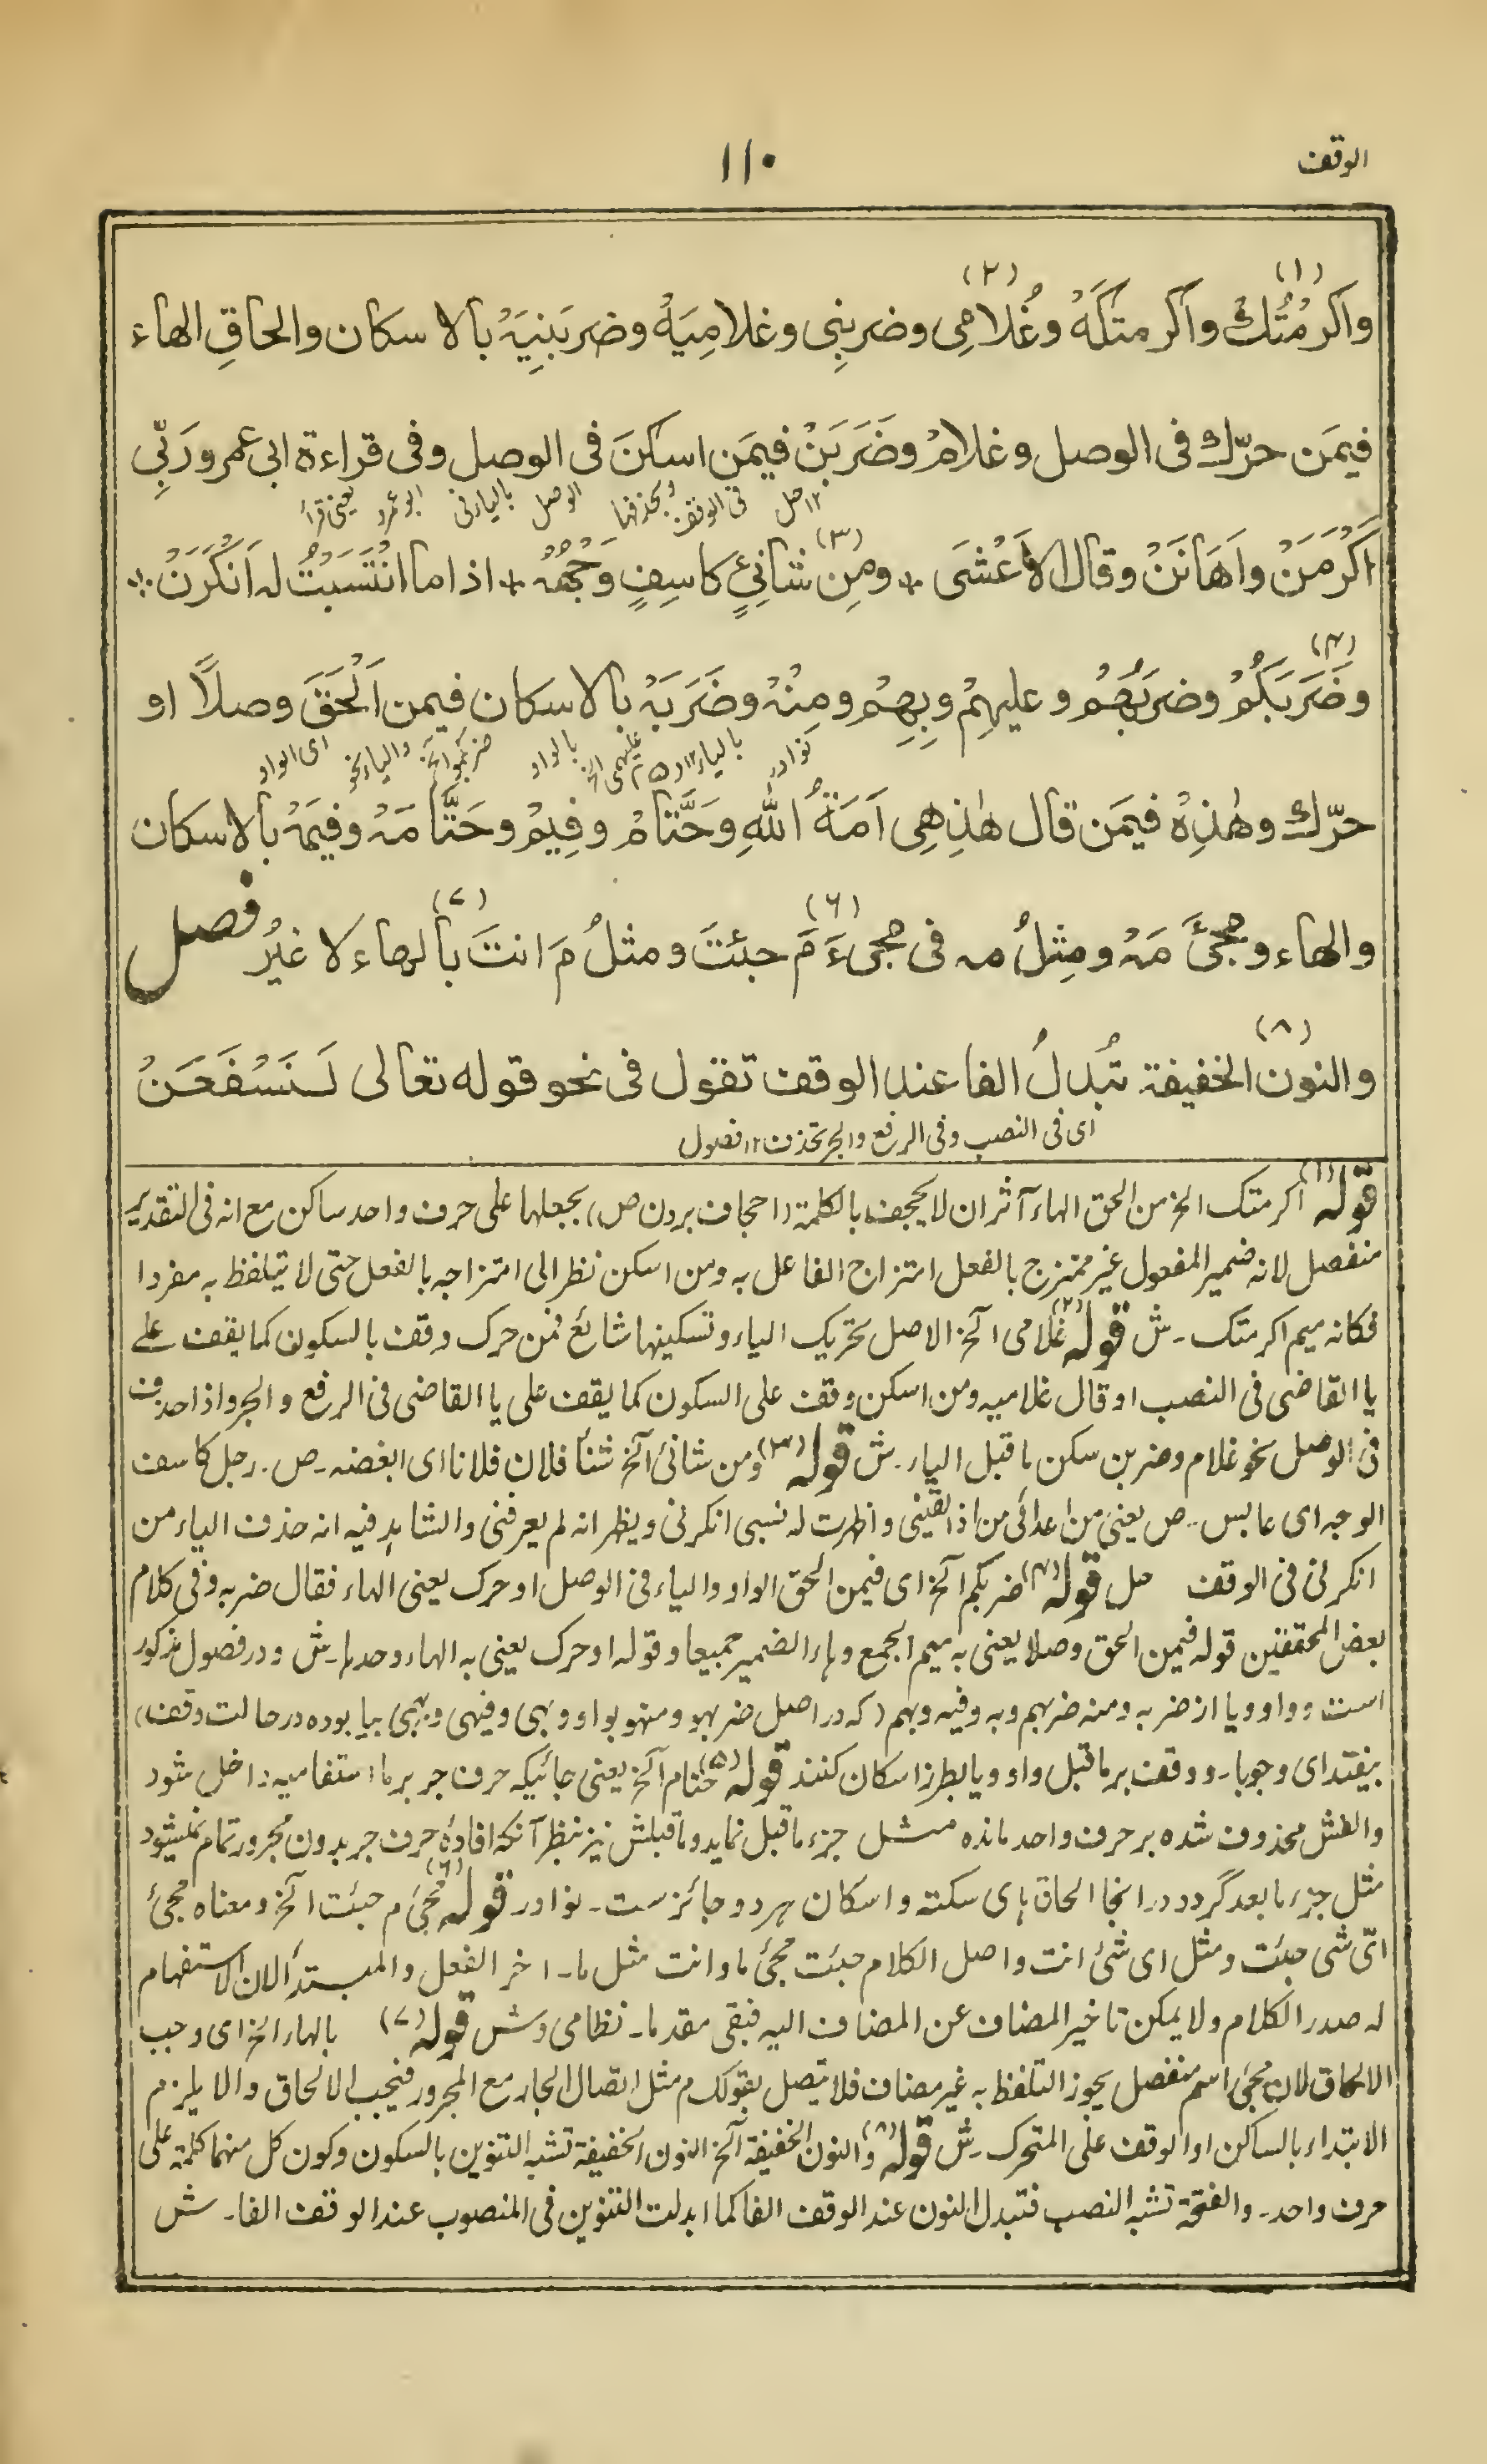 الوقف
١١٠
(١) (٢)
واكرمْتُكْ واكرمتُكَهْ وغُلامِى وضربنِى وغلامِيَهْ وضربَنِيَهْ بالاسكان والحاقِ الهاء
فيمَن حرّك فى الوصل وغلامْ وضَرَبَنْ فيمَن اسكنَ فى الوصل وفى قراءة ابى عمرو رَبّى
يعنى قرأ ابو عمرو بالياء فى الوصل وبحذفها فى الوقف ١٢ حل
(٣)
اَكْرَمَنْ واَهَانَنْ وقال الاَعْشَى + ومِن شانِئٍ كاسِفٍ وَجْهُهُ + اذا ما انْتَسَبْتُ له اَنْكَرَنْ ؞
(٤)
وضَرَبَكُمْ وضربَهُمْ وعليهِمْ وبِهِمْ ومِنْهْ وضَرَبَهْ بالاسكان فيمن اَلْحَقَ وصلًا او
اى الواو والياء نحو ضربكمو الخ بالواو عليهمى الخ بالياء ١٢ نوادر
حرّك وهٰذِهْ فيمَن قال هٰذِهِى اَمَةُ اللّٰهِ وحَتّامْ وفِيمْ وحَتَّامَهْ وفيمَهْ بالاسكان
(٦) (٧)
والهاء ومجىءَ مَهْ ومِثلُ مه فى مجىءَ مَ جئتَ ومثلُ مَ انتَ بالهاء لا غيرُ فصل
(٨)
والنون الخفيفة تُبدلُ الفا عند الوقف تقول فى نحو قوله تعالى لَنَسْفَعَنْ
اى فى النصب وفى الرفع والجر تحذف ١٢ فصول
قوله (١) اكرمتك الخ من الحق الهاء آثر ان لا يجحف بالكلمة (احجاف بردن ص) بجعلها على حرف واحد ساكن مع انه فى التقدير
منفصل لانه ضمير المفعول غير ممتزج بالفعل امتزاج الفاعل به ومن اسكن نظر الى امتزاجه بالفعل حتى لا يتلفظ به مفردا
فكانه ميم اكرمتك ۔ ش قوله (٢) غلامى الخ الاصل تحريك الياء وتسكينها شائع فمن حرك وقف بالسكون كما يقف على
يا القاضى فى النصب او قال غلاميه ومن اسكن وقف على السكون كما يقف على يا القاضى فى الرفع والجر واذا حذف
فى الوصل نحو غلام وضربن سكن ما قبل الياء ۔ ش قوله (٣) ومن شانئ الخ شنأ فلان فلانا اى ابغضه ۔ ص ۔ رجل كاسف
الوجه اى عابس ۔ ص يعنى من اعدائى من اذا لقينى واظهرت له نسبى انكرنى ويظهر انه لم يعرفنى والشاهد فيه انه حذف الياء من
انكرنى فى الوقف حل قوله (٤) ضربكم الخ اى فيمن الحق الواو والياء فى الوصل او حرك يعنى الهاء فقال ضربه وفى كلام
بعض المحققين قوله فيمن الحق وصلا يعنى به ميم الجمع وهاء الضمير جميعا وقوله او حرك يعنى به الهاء وحدها ۔ ش ودر فصول مذكور
است و واو و يا از ضربه ومنه ضربهم وبه وفيه وبهم (كه در اصل ضربهو ومنهو بواو وبهى وفيهى وبهمى بيا بوده در حالت وقف)
بيفتد اى وجوبا ۔ و وقف بر ماقبل واو ويا بطرز اسكان كنند قوله (٥) حتام الخ يعنى جائيكه حرف جر بر ما استفاميه داخل شود
والفش محذوف شده بر حرف واحد مانده مثل جزء ماقبل نمايد وماقبلش نيز بنظر آنكه افادۂ حرف جر بدون مجرور تمام نميشود
مثل جزء ما بعد گردد در انجا الحاق ہاى سكته و اسكان ہر دو جائز ست ۔ نوادر قوله (٦) مجئ م جئت الخ ومعناه مجئ
اىّ شى جئت ومثل اى شئ انت واصل الكلام جئت مجئ ما وانت مثل ما ۔ اخر الفعل والمبتدأ لان الاستفهام
له صدر الكلام ولا يمكن تاخير المضاف عن المضاف اليه فبقى مقدما ۔ نظامى وش قوله (٧) بالهاء الخ اى وجب
الالحاق لان مجئ اسم منفصل يجوز التلفظ به غير مضاف فلا تصل بقولك م مثل اتصال الجار مع المجرور فيجب الالحاق والا يلزم
الابتداء بالساكن او الوقف على المتحرك ۔ ش قوله (٨) والنون الخفيفة الخ النون الخفيفة تشبه التنوين بالسكون وكون كل منهما كلمة على
حرف واحد ۔ والفتحة تشبه النصب فتبدل النون عند الوقف الفا كما ابدلت التنوين فى المنصوب عند الوقف الفا ۔ ش